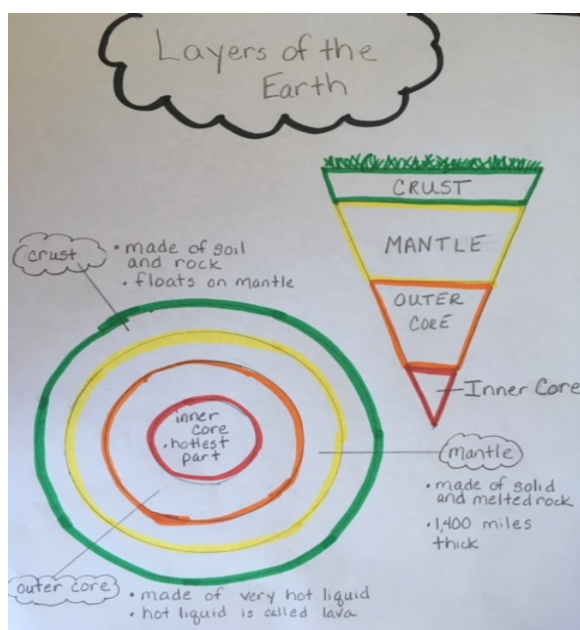 Layers of the
Earth
CRUST
MANTLE
OUTER
CORE
Inner Core
crust
• made of soil
and rock
• floats on mantle
inner
core
• hottest
part
mantle
• made of solid
and melted rock
• 1,400 miles
thick
outer core
• made of very hot liquid
• hot liquid is called lava